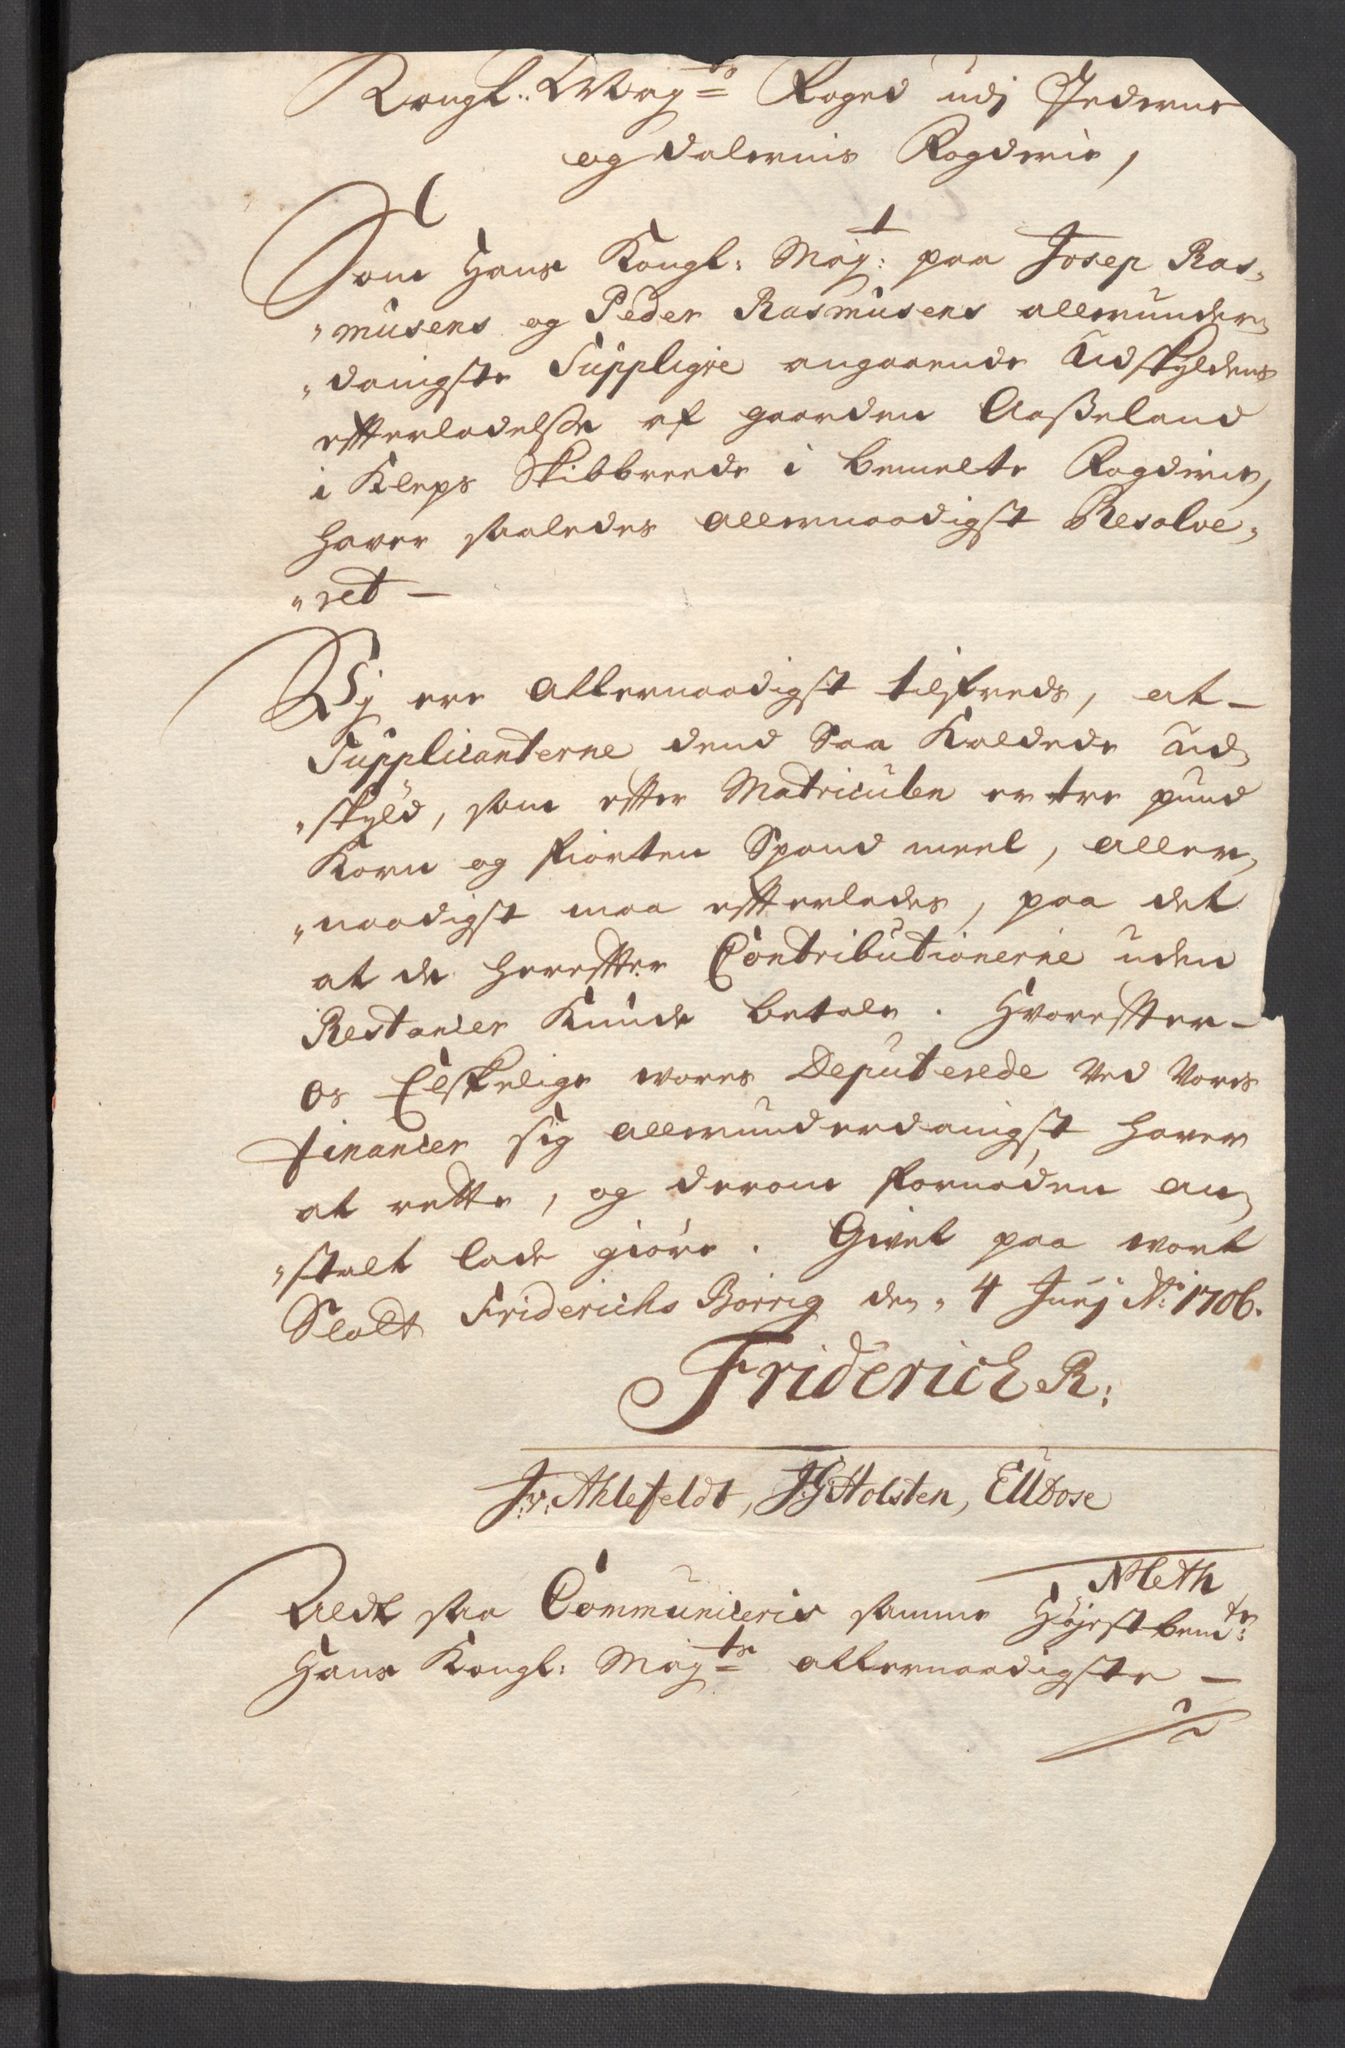 Kongl: Mayts Foged udj Jederns
og dalernis Fogderie,
Som Hans Kongl: May:t paa Josep Ras-
"musens og Peder Rasmusens allerunder-
"danigste Suppliqve angaaende Udskyldens
efterladelse af gaarden Aaßeland
i Kleps Skibbreede i bemelte Fogderie,
hafver saaledes allernaadigst Resolve-
"ret -
Vj ere allernaadigst tilfreds, at
Supplicanterne dend saa kaldede ud-
"skyld, som efter Matriculen er tre pund
Korn og fiorten Spand meel, aller-
"naadigst maa efterlades, paa det
at de herefter Contributionerne uden
Restancier kunde betale. Hvorefter
os Elskelige vores Deputerede Ved Vores
Financier sig allerunderdanigst hafver
at rette, og derom fornøden an-
"stalt lade giöre. Givet paa vort
Slott Friderichs Borrig den 4 Junj Ao: 1706.
Friderich R:
J:v: Ahlefeldt, JGHolsten, CUDose
NMeth
Ald saa Communiceris samme Höjestbemte:
Hans Kongl: Mayts allernaadigste -